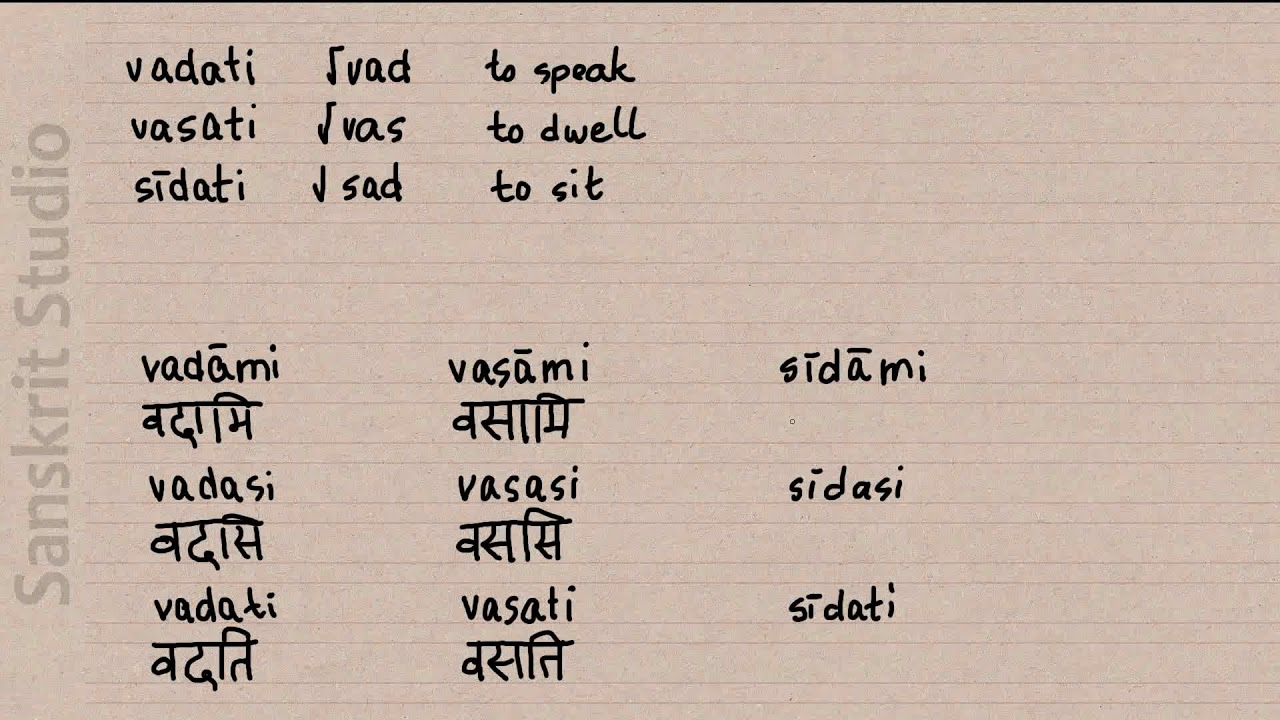 vadati √vad to speak
vasati √vas to dwell
sīdati √sad to sit
vadāmi vasāmi sīdāmi
वदामि वसामि
vadasi vasasi sīdasi
वदसि वससि
vadati vasati sīdati
वदति वसति
Sanskrit Studio